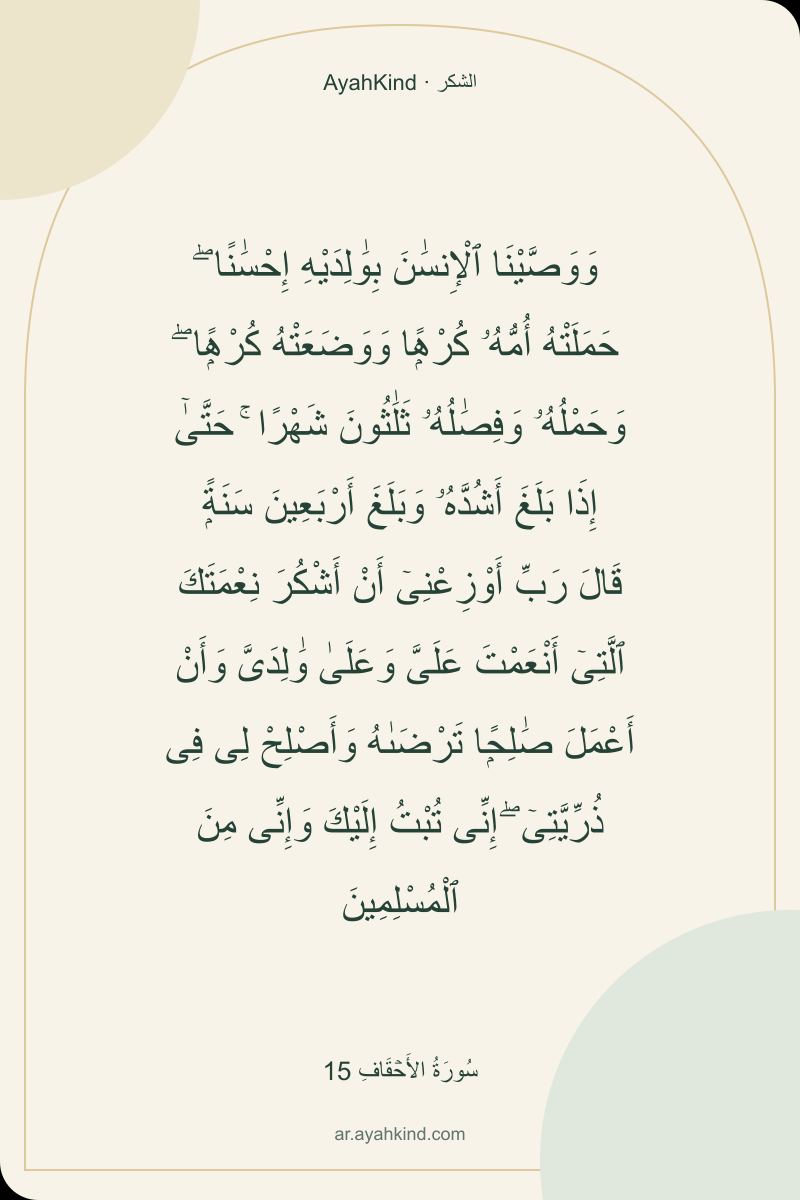 AyahKind · الشكر
وَوَصَّيْنَا ٱلْإِنسَٰنَ بِوَٰلِدَيْهِ إِحْسَٰنًا ۖ
حَمَلَتْهُ أُمُّهُۥ كُرْهًۭا وَوَضَعَتْهُ كُرْهًۭا ۖ
وَحَمْلُهُۥ وَفِصَٰلُهُۥ ثَلَٰثُونَ شَهْرًا ۚ حَتَّىٰٓ
إِذَا بَلَغَ أَشُدَّهُۥ وَبَلَغَ أَرْبَعِينَ سَنَةًۭ
قَالَ رَبِّ أَوْزِعْنِىٓ أَنْ أَشْكُرَ نِعْمَتَكَ
ٱلَّتِىٓ أَنْعَمْتَ عَلَىَّ وَعَلَىٰ وَٰلِدَىَّ وَأَنْ
أَعْمَلَ صَٰلِحًۭا تَرْضَىٰهُ وَأَصْلِحْ لِى فِى
ذُرِّيَّتِىٓ ۖ إِنِّى تُبْتُ إِلَيْكَ وَإِنِّى مِنَ
ٱلْمُسْلِمِينَ
سُورَةُ الأَحۡقَافِ 15
ar.ayahkind.com